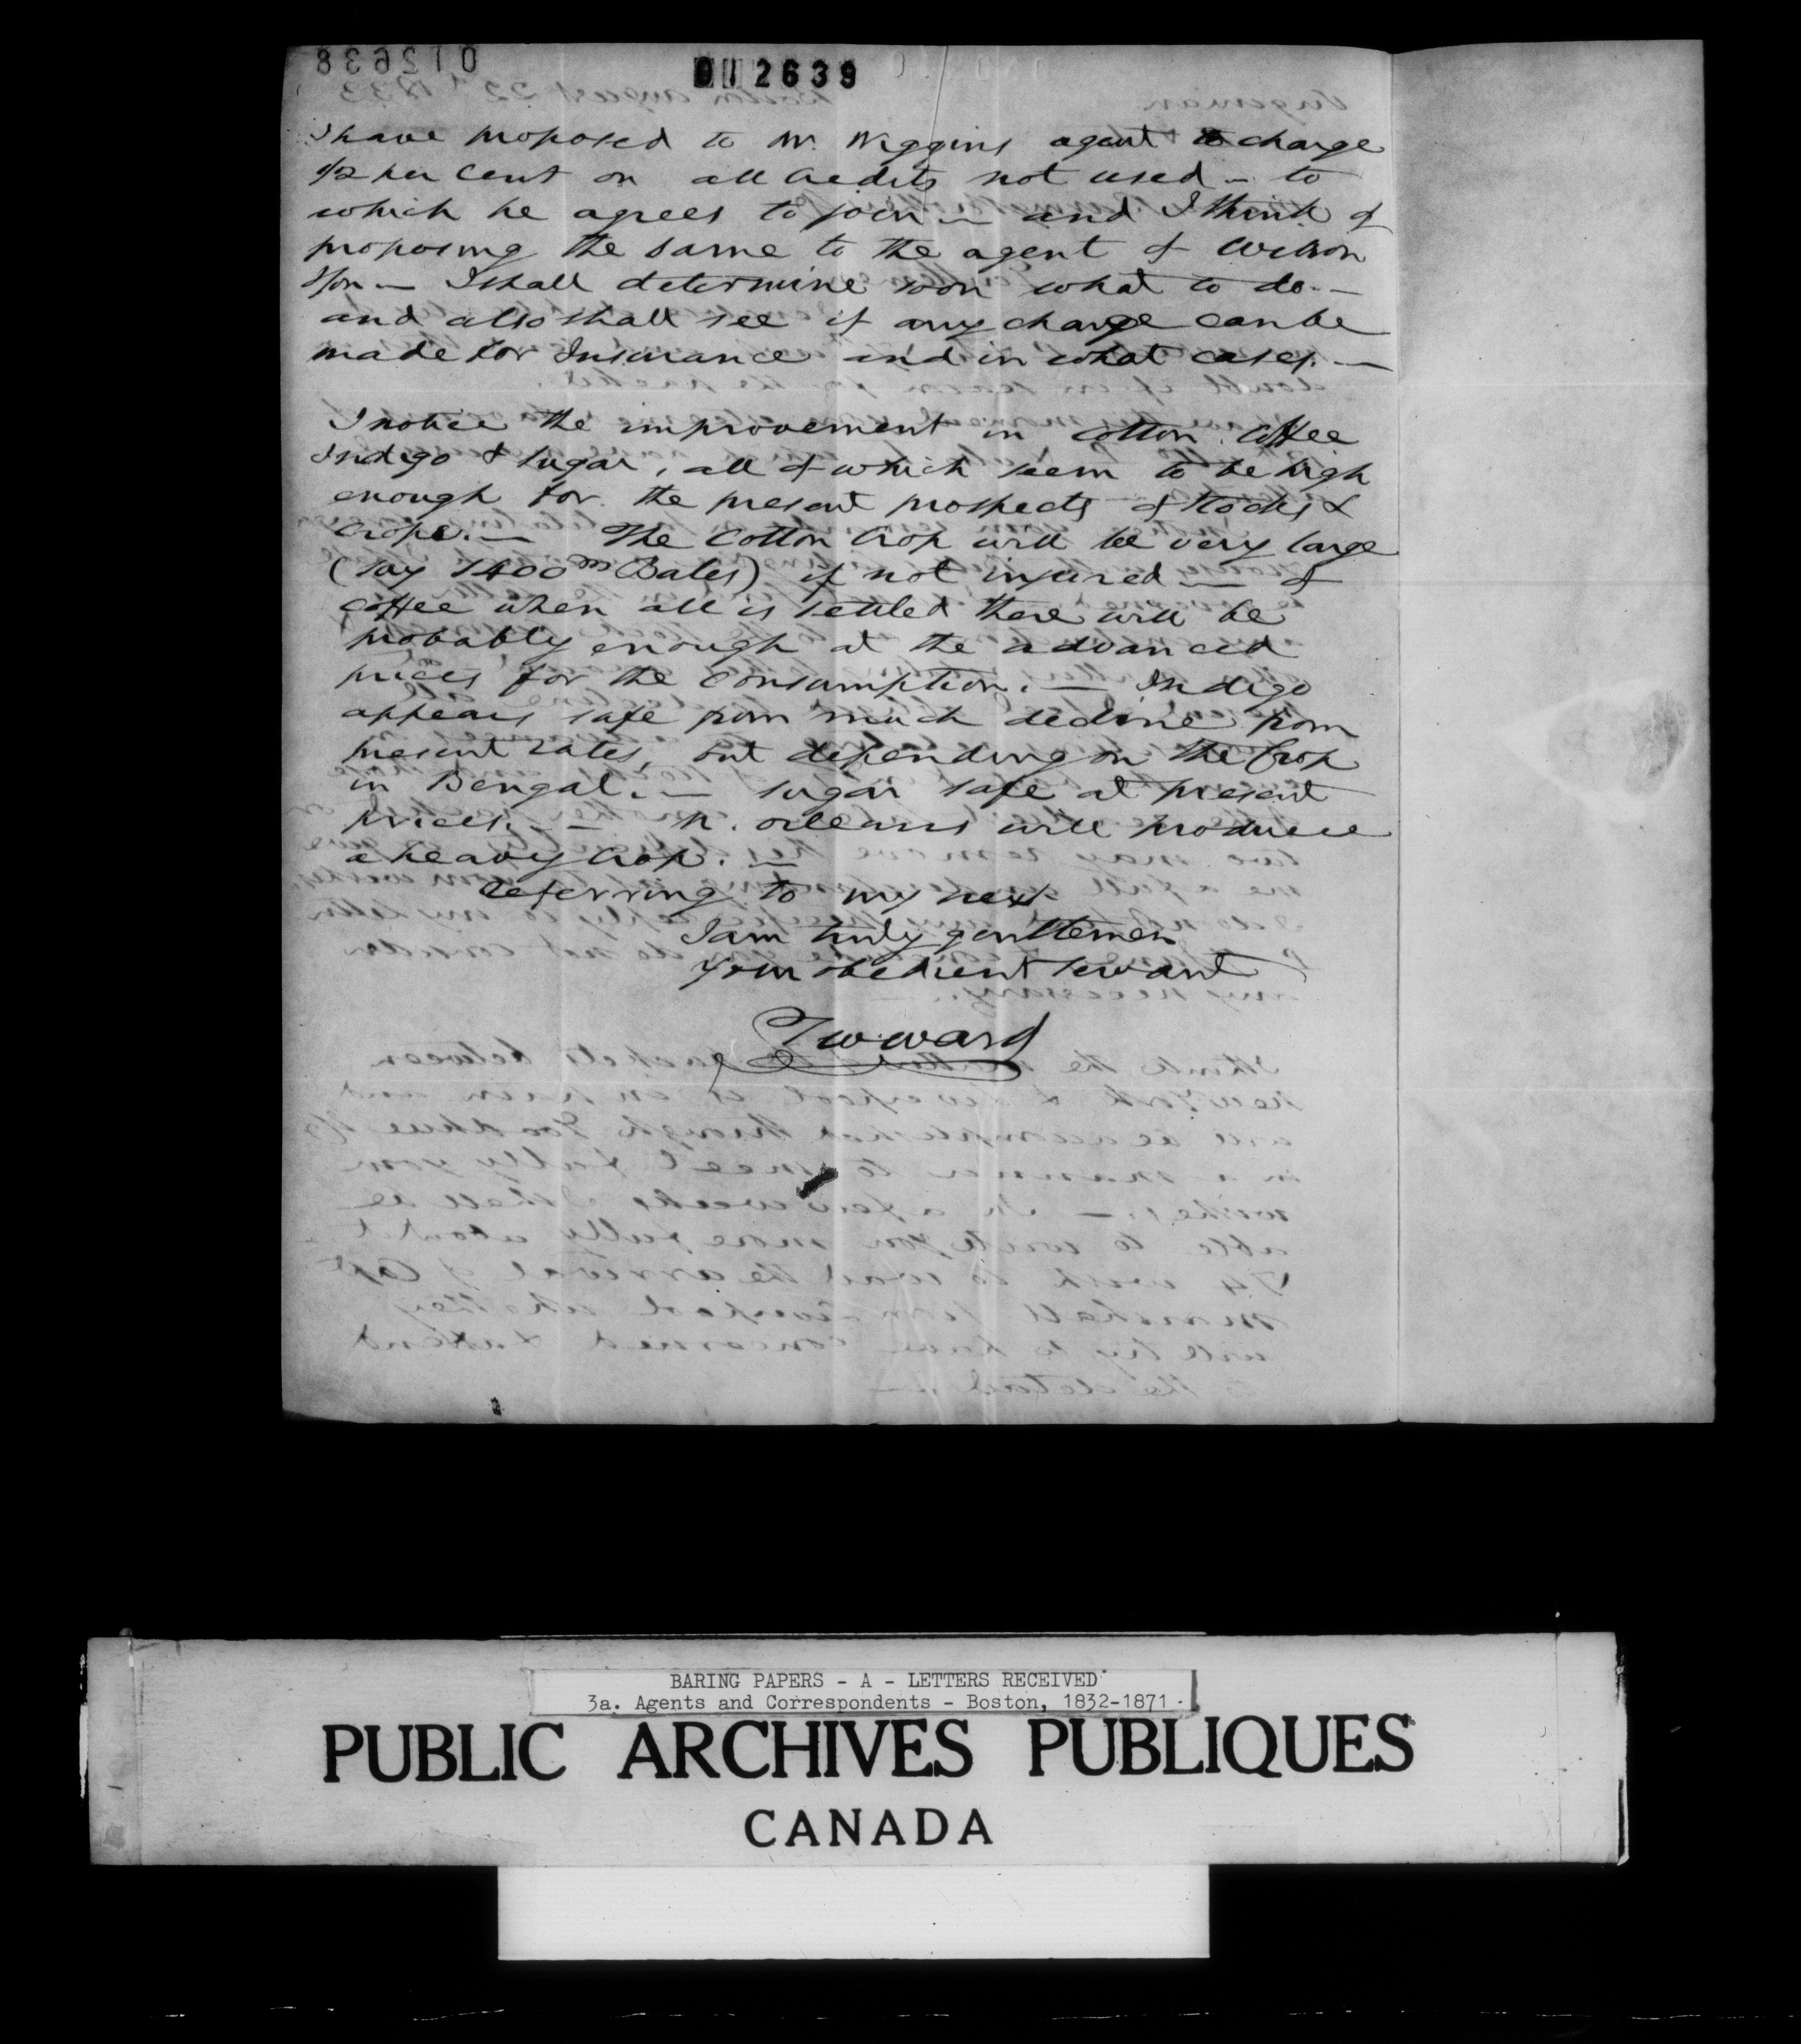 012639
I have proposed to Mr. Wiggins agent to charge
1/2 per Cent on all Credits not used – to
which he agrees to join – and I think of
proposing the same to the agent of Wilson
– I shall determine soon what to do. –
and also shall see if any charge can be
made for Insurance and in what cases. –
I notice the improvement in Cotton, Coffee
Indigo & Sugar, all of which seem to be high
enough for the present prospects of Stocks &
Crops. – The Cotton Crop will be very large
(say 1400 m Bales) if not injured – of
coffee when all is settled there will be
probably enough at the advanced
prices for the Consumption. – Indigo
appears safe from much decline from
present rates, but depending on the Crop
in Bengal. – Sugar safe at present
prices. – N. Orleans will produce
a heavy Crop. –
Referring to my next
I am truly gentlemen
your obedient servant
T W Ward
BARING PAPERS - A - LETTERS RECEIVED
3a. Agents and Correspondents - Boston, 1832-1871.
PUBLIC ARCHIVES PUBLIQUES
CANADA